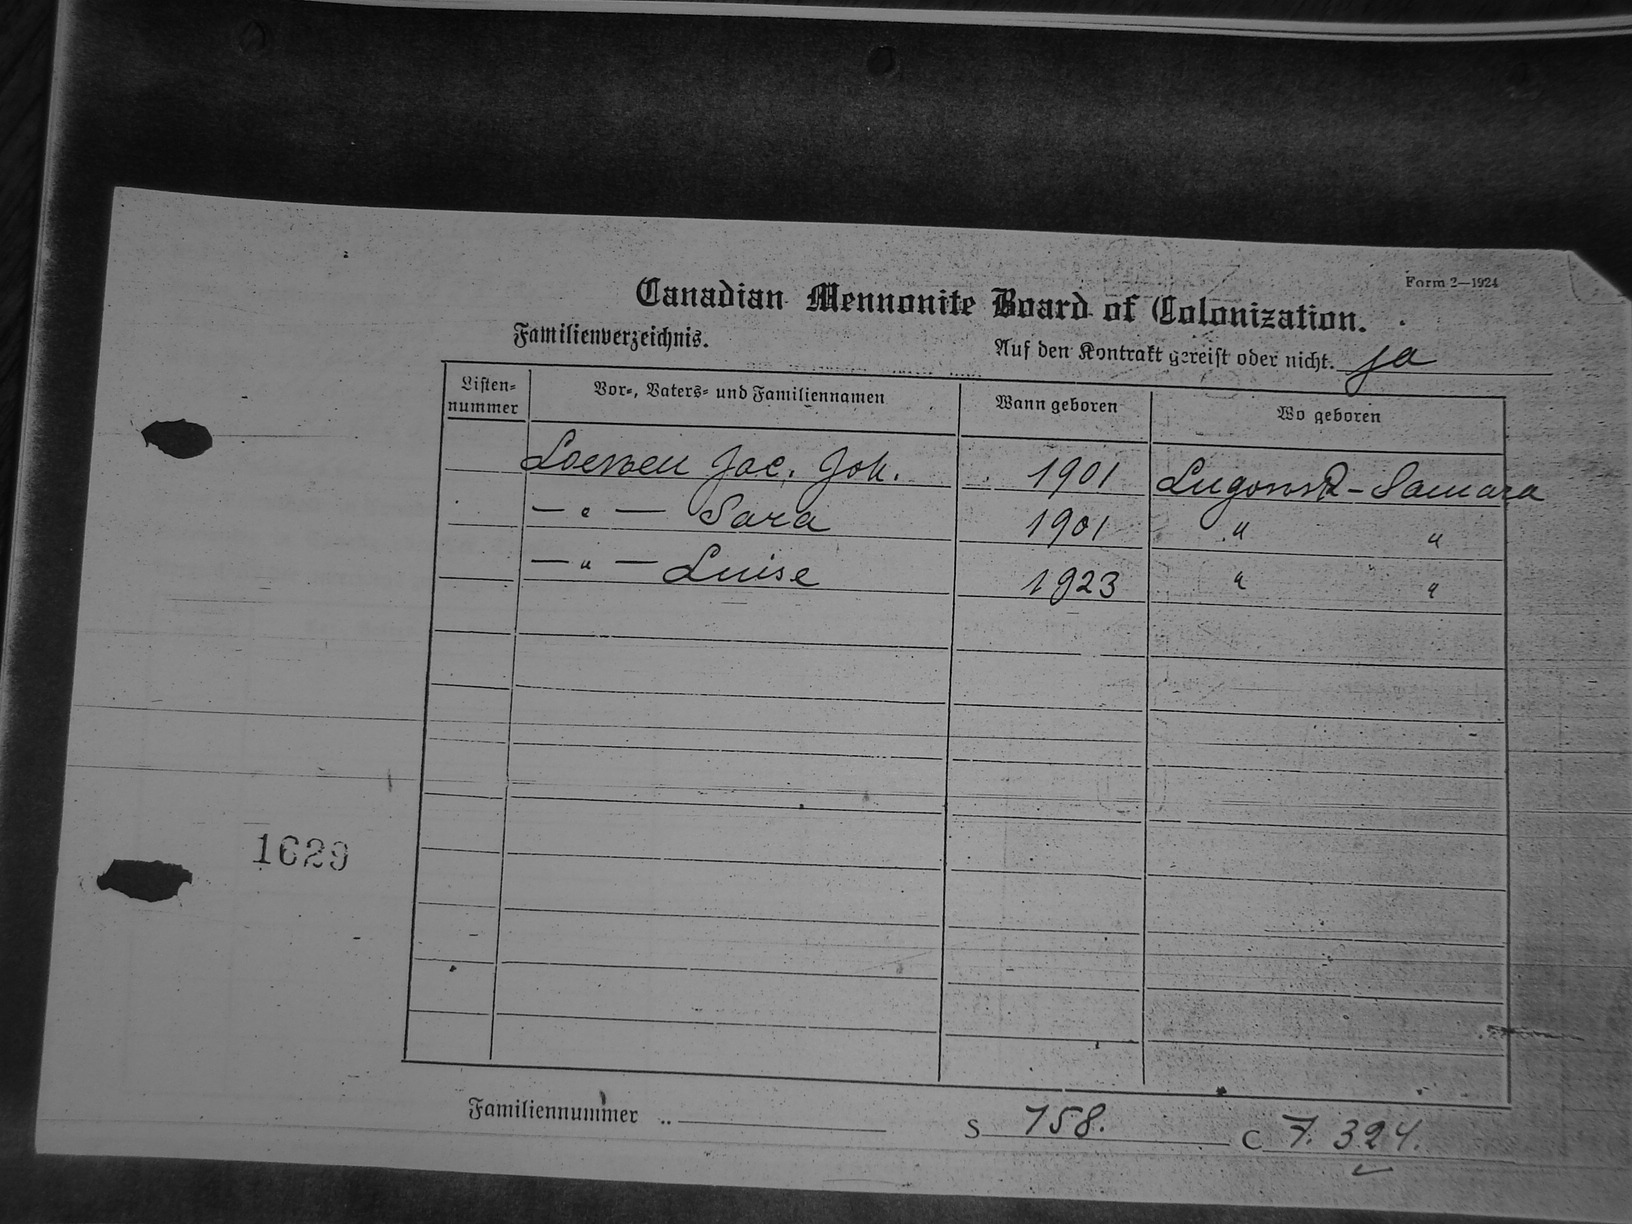 Form 2—1924
Canadian Mennonite Board of Colonization.
Familienverzeichnis.
Auf den Kontrakt gereist oder nicht. ja
Listen-nummer Vor-, Vaters- und Familiennamen Wann geboren Wo geboren
Loewen Jac. Joh. 1901 Lugowsk-Samara
— " — Sara 1901 " "
— " — Luise 1923 " "
1629
Familiennummer S 758. C 7. 324.